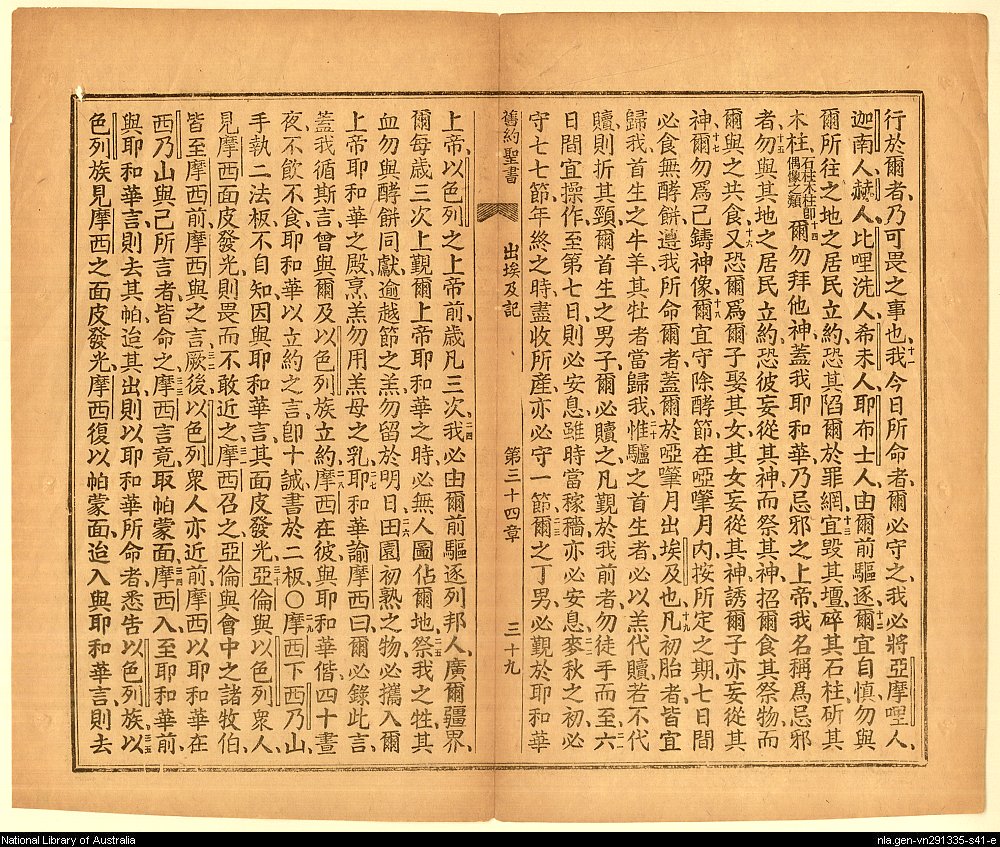 行於爾者、乃可畏之事也、十一我今日所命者、爾必守之、我必將亞摩哩人、
迦南人、赫人、比哩洗人、希未人、耶布士人、由爾前驅逐、十二爾宜自慎、勿與
爾所往之地之居民立約、恐其陷爾於罪網、十三宜毀其壇、碎其石柱、斫其
木柱、石柱木柱即偶像之類十四爾勿拜他神、蓋我耶和華乃忌邪之上帝、我名稱爲忌邪
者、十五勿與其地之居民立約、恐彼妄從其神而祭其神、招爾食其祭物、而
爾與之共食、十六又恐爾爲爾子娶其女、其女妄從其神、誘爾子亦妄從其
神、十七爾勿爲己鑄神像、十八爾宜守除酵節、在啞肇月內、按所定之期、七日間
必食無酵餅、遵我所命爾者、蓋爾於啞肇月出埃及也、十九凡初胎者皆宜
歸我、首生之牛羊、其牡者當歸我、二十惟驢之首生者、必以羔代贖、若不代
贖、則折其頸、爾首生之男子、爾必贖之、凡覲於我前者、勿徒手而至、二一六
日間宜操作、至第七日、則必安息、雖時當稼穡、亦必安息、二二麥秋之初、必
守七七節、年終之時、盡收所產、亦必守一節、二三爾之丁男、必覲於耶和華
舊約聖書 出埃及記 第三十四章 三十九
上帝、以色列之上帝前、歲凡三次、二四我必由爾前驅逐列邦人、廣爾疆界、
爾每歲三次上覲爾上帝耶和華之時、必無人圖佔爾地、二五祭我之牲、其
血勿與酵餅同獻、逾越節之羔、勿留於明日、二六田園初熟之物、必攜入爾
上帝耶和華之殿、烹羔勿用羔母之乳、二七耶和華諭摩西曰、爾必錄此言、
蓋我循斯言、曾與爾及以色列族立約、二八摩西在彼、與耶和華偕、四十晝
夜、不飲不食、耶和華以立約之言、卽十誡、書於二板、〇二九摩西下西乃山、
手執二法板、不自知因與耶和華言、其面皮發光、三十亞倫與以色列衆人、
見摩西面皮發光、則畏而不敢近之、三一摩西召之、亞倫與會中之諸牧伯、
皆至摩西前、摩西與之言、三二厥後以色列衆人亦近前、摩西以耶和華在
西乃山與己所言者、皆命之、三三摩西言竟、取帕蒙面、三四摩西入至耶和華前、
與耶和華言、則去其帕、迨其出、則以耶和華所命者、悉告以色列族、三五以
色列族見摩西之面皮發光、摩西復以帕蒙面、迨入與耶和華言則去
National Library of Australia
nla.gen-vn291335-s41-e